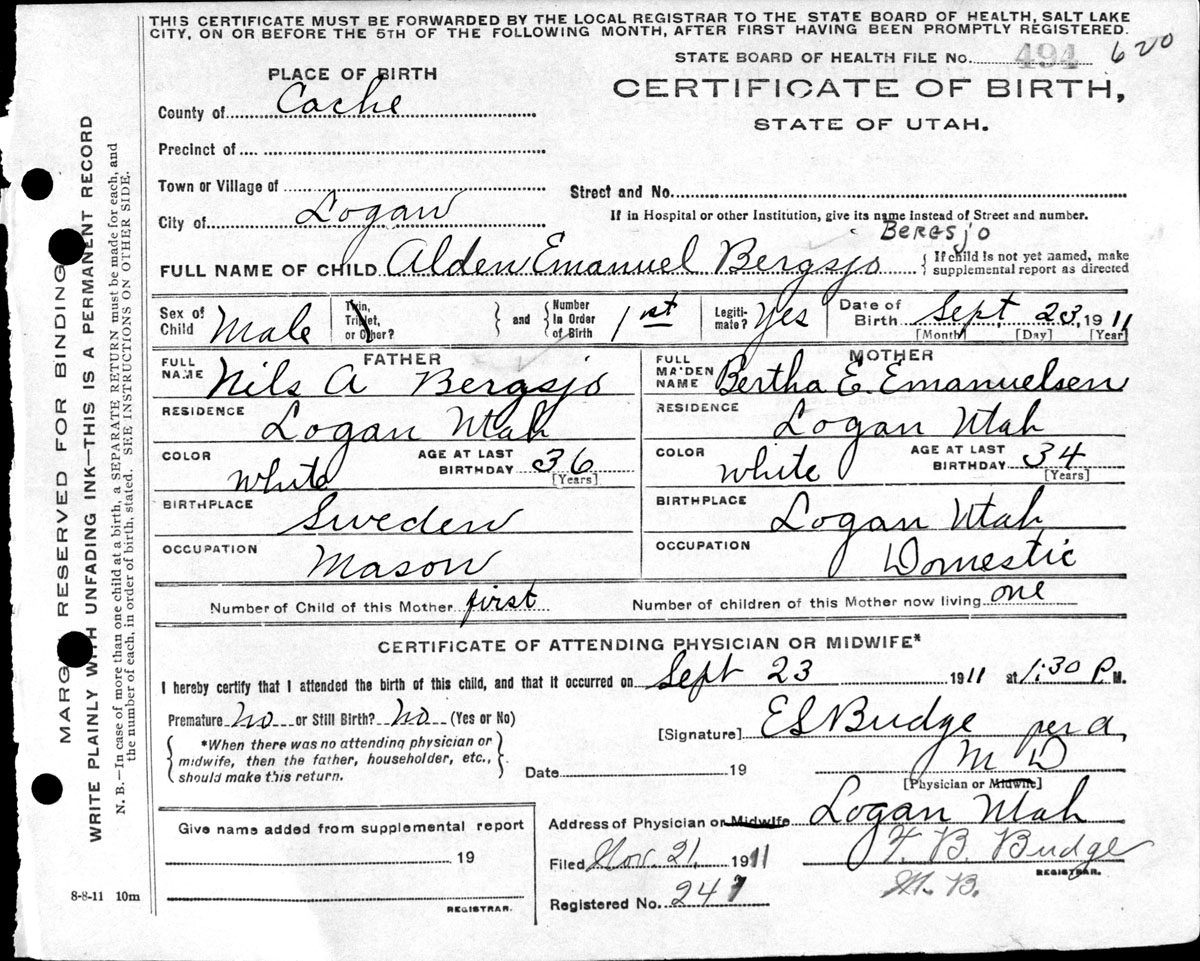 THIS CERTIFICATE MUST BE FORWARDED BY THE LOCAL REGISTRAR TO THE STATE BOARD OF HEALTH, SALT LAKE
CITY, ON OR BEFORE THE 5TH OF THE FOLLOWING MONTH, AFTER FIRST HAVING BEEN PROMPTLY REGISTERED.
STATE BOARD OF HEALTH FILE No. 494 620
PLACE OF BIRTH
CERTIFICATE OF BIRTH,
County of Cache
STATE OF UTAH.
Precinct of
Town or Village of
Street and No.
City of Logan
If in Hospital or other Institution, give its name instead of Street and number.
Bergsjo
FULL NAME OF CHILD Alden Emanuel Bergsjo { If child is not yet named, make
supplemental report as directed
Sex of Child Male
Twin, Triplet, or Other? } and { Number In Order of Birth 1st
Legiti-mate? Yes
Date of Birth Sept 23, 1911
[Month] [Day] [Year]
FATHER
FULL NAME Nils A Bergsjo
RESIDENCE Logan Utah
COLOR White AGE AT LAST BIRTHDAY 36 [Years]
BIRTHPLACE Sweden
OCCUPATION Mason
MOTHER
FULL MAIDEN NAME Bertha E. Emanuelsen
RESIDENCE Logan Utah
COLOR White AGE AT LAST BIRTHDAY 34 [Years]
BIRTHPLACE Logan Utah
OCCUPATION Domestic
Number of Child of this Mother first Number of children of this Mother now living one
CERTIFICATE OF ATTENDING PHYSICIAN OR MIDWIFE*
I hereby certify that I attended the birth of this child, and that it occurred on Sept 23 1911 at 1:30 P. M.
Premature No or Still Birth? No (Yes or No)
*When there was no attending physician or
midwife, then the father, householder, etc.,
should make this return.
[Signature] E S Budge per a
M D
Date 19
[Physician or Midwife]
Give name added from supplemental report
19
REGISTRAR.
Address of Physician or Midwife Logan Utah
Filed Nov. 21, 1911 T. B. Budge
REGISTRAR.
Registered No. 247 M. B.
8-8-11 10m
MARGIN RESERVED FOR BINDING
WRITE PLAINLY WITH UNFADING INK—THIS IS A PERMANENT RECORD
N. B.—In case of more than one child at a birth, a SEPARATE RETURN must be made for each, and
the number of each, in order of birth, stated. SEE INSTRUCTIONS ON OTHER SIDE.